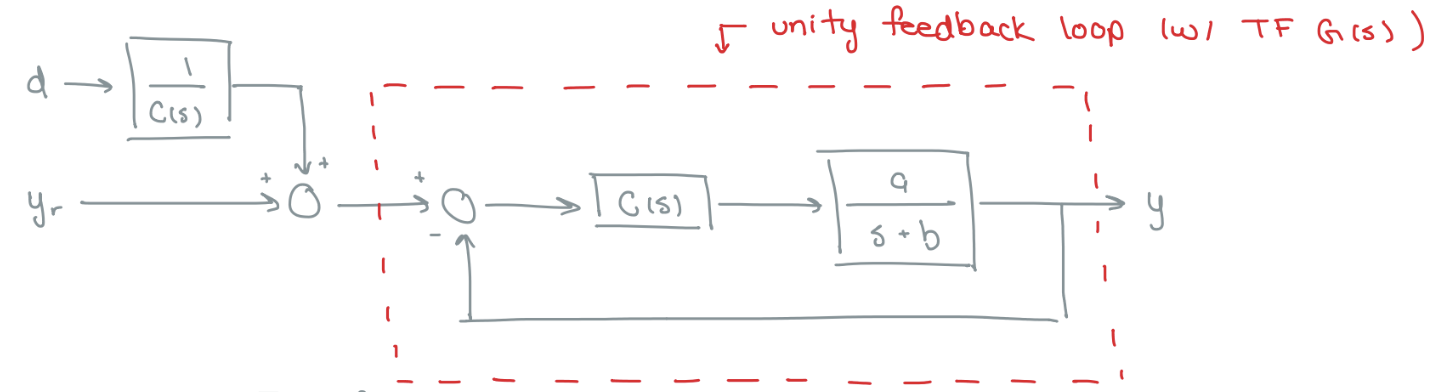 unity feedback loop (w/ TF G(s))
d
1
C(s)
+
yr
+
+
-
C(s)
a
s + b
y